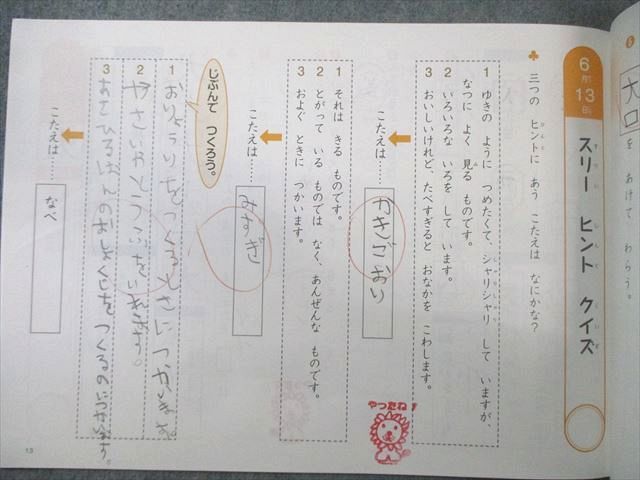 大口
を あけて わらう。
6月13日
スリー ヒント クイズ
三つの ヒントに あう こたえは なにかな？
1 ゆきの ように つめたくて、シャリシャリ して いますが、
なつに よく 見る ものです。
2 いろいろな いろを して います。
3 おいしいけれど、たべすぎると おなかを こわします。
こたえは……
かきごおり
やったね！
1 それは きる ものです。
2 とがって いる ものでは なく、あんぜんな ものです。
3 およぐ ときに つかいます。
こたえは……
みずぎ
じぶんで つくろう。
1 おりょうりをつくるときにつかいます。
2 やさいやくだものをいれます。
3 あさひるばんのおしょくじをつくるのにつかいます。
こたえは……
なべ
13